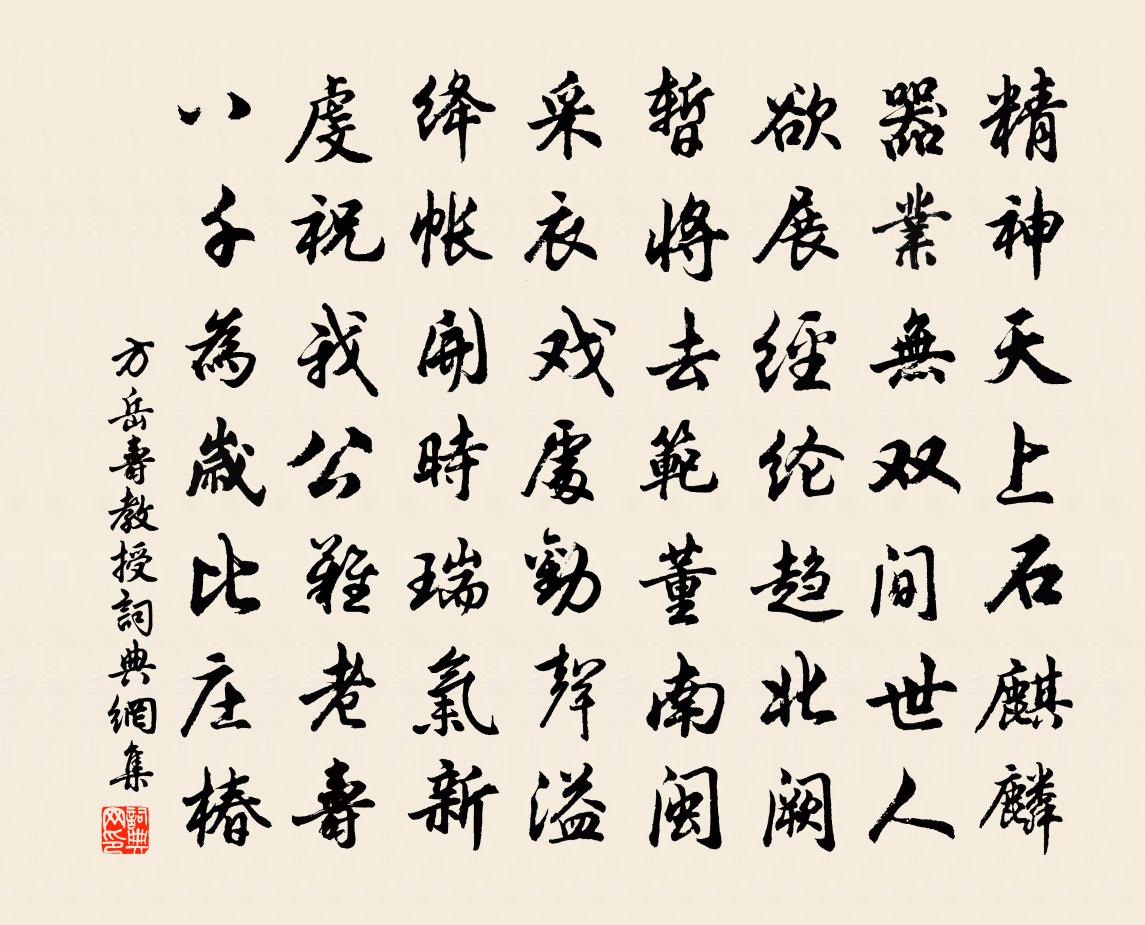 精神天上石麒麟
器業無双间世人
欲展經纶趋北阙
暂将去範董南闽
采衣戏處勸聲溢
绛帐開時瑞氣新
虔祝我公難老壽
八千為歳比庄椿
方岳壽教授詞典網集
詞典网